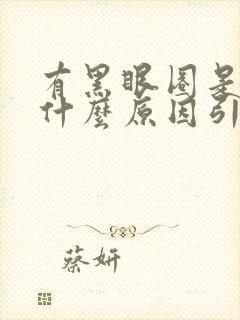 有黑眼圈是
什麼原因引
蔡妍